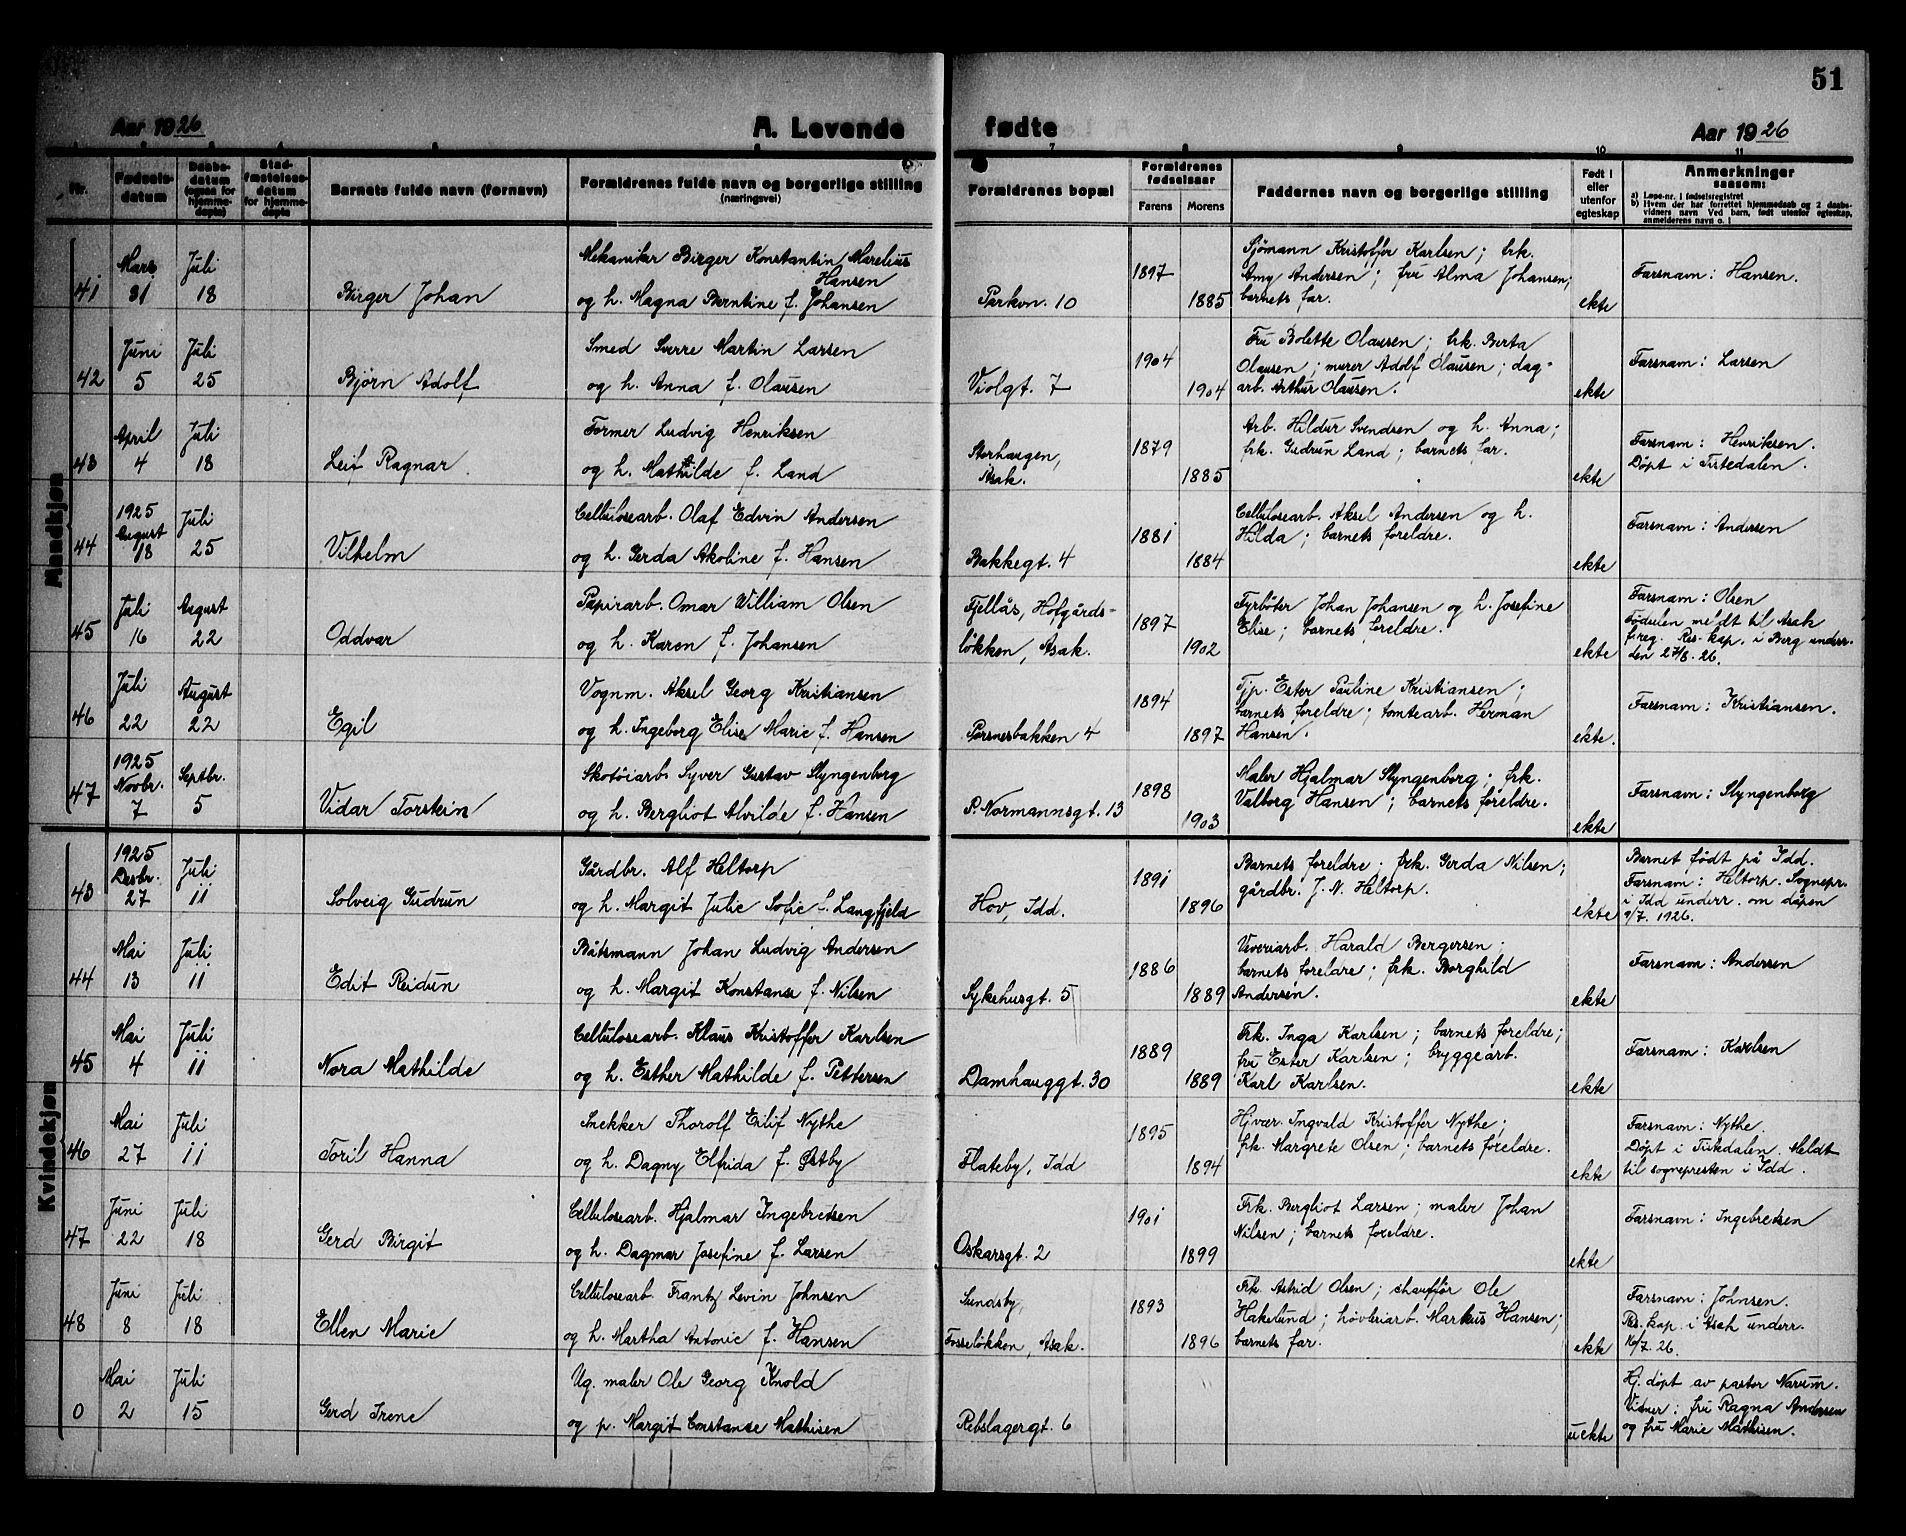 51
Aar 1926 A. Levende fødte Aar 1926
7 8 9 10 11
Nr. Fødsels-datum Daabs-datum (ogsaa for hjemme-døpte) Stad-fæstelses-datum for hjemme-døpte Barnets fulde navn (fornavn) Forældrenes fulde navn og borgerlige stilling (næringsvei) Forældrenes bopæl Forældrenes fødselsaar Farens Morens Faddernes navn og borgerlige stilling Født i eller utenfor egteskap Anmerkninger saasom: a) Løpe-nr. i fødselsregistret b) Hvem der har forrettet hjemmedaab og 2 daabs-vidners navn Ved barn, født utenfor egteskap, anmelderens navn o. l
Mandkjøn
41 Mars 31 Juli 18 Birger Johan
Mekaniker Birger Konstantin Marelius Hansen
og h. Magna Berntine f. Johansen
Parkvn. 10 1897 1885
Sjømann Kristoffer Karlsen; frk.
Amy Andersen; fru Alma Johansen;
barnets far.
ekte Farsnavn: Hansen.
42 Juni 5 Juli 25 Bjørn Adolf
Smed Sverre Martin Larsen
og h. Anna f. Olausen
Violgt. 7 1904 1904
Fru Bolette Olausen; frk. Berta
Olausen; murer Adolf Olausen; dag-
arb. Arthur Olausen.
ekte Farsnavn: Larsen
43 April 4 Juli 18 Leif Ragnar.
Former Ludvig Henriksen
og h. Mathilde f. Land
Storhaugen,
Asak. 1879 1885
Arb. Hildur Svendsen og h. Anna;
frk. Gudrun Land; barnets far.
ekte Farsnam: Henriksen.
Døpt i Tistedalen.
44 1925 August 18 Juli 25 Vilhelm
Cellulosearb. Olaf Edvin Andersen
og h. Gerda Akoline f. Hansen
Bakkegt. 4 1881 1884
Cellulosearb. Aksel Andersen og h.
Hilda; barnets foreldre.
ekte Farsnavn: Andersen
45 Juli 16 August 22 Oddvar
Papirarb. Omar William Olsen
og h. Karen f. Johansen
Fjellås, Hofgårds-
løkken, Asak. 1897 1902
Fyrbøter Johan Johansen og h. Josefine
Elise; barnets foreldre.
ekte Farsnavn: Olsen
Fødselen meldt til Asak
f.reg. Res. kap. i Berg underr.
den 27/8. 26.
46 Juli 22 August 22 Egil
Vognm. Aksel Georg Kristiansen
og h. Ingeborg Elise Marie f. Hansen
Porsnesbakken 4 1894 1897
Tjp. Ester Pauline Kristiansen;
barnets foreldre; tomtearb. Herman
Hansen.
ekte. Farsnavn: Kristiansen.
47 1925 Novbr. 7 Septbr. 5 Vidar Torstein
Skotøiarb. Syver Gustav Slyngenborg
og h. Bergliot Alvilde f. Hansen
P. Normannsgt. 13 1898 1903
Maler Hjalmar Slyngenborg; frk.
Valborg Hansen; barnets foreldre.
ekte Farsnavn: Slyngenborg
Kvindekjøn
43 1925 Desbr. 27 Juli 11 Solveig Gudrun
Gårdbr. Alf Heltorp
og h. Margit Julie Sofie f. Langfjeld
Hov, Idd. 1891 1896
Barnets foreldre; frk. Gerda Nilsen;
gårdbr. J. N. Heltorp.
ekte Barnet født på Idd.
Farsnavn: Heltorp. Sognepr.
i Idd underr. om dåpen
9/7. 1926.
44 Mai 13 Juli 11 Edit Reidun
Båtsmann Johan Ludvig Andersen
og h. Margit Konstanse f. Nilsen
Sykehusgt. 5 1886 1889
Veveriarb. Harald Bergersen;
barnets foreldre; frk. Borghild
Andersen.
ekte Farsnavn: Andersen
45 Mai 4 Juli 11 Nora Mathilde
Cellulosearb. Klaus Kristoffer Karlsen
og h. Esther Mathilde f. Pettersen
Damhauggt. 30 1889 1889
Frk. Inga Karlsen; barnets foreldre;
fru Ester Karlsen; bryggearb.
Karl Karlsen.
ekte Farsnam: Karlsen
46 Mai 27 Juli 11 Toril Hanna
Snekker Thorolf Eilif Nythe
og h. Dagny Elfrida f. Østby
Flateby, Idd 1895 1894
Hj.vær. Ingvald Kristoffer Nythe;
frk. Margrete Olsen; barnets foreldre.
ekte Farsnavn: Nythe.
Døpt i Tistedalen. Meldt
til sognepresten i Idd.
47 Juni 22 Juli 18 Gerd Birgit
Cellulosearb. Hjalmar Ingebretsen
og h. Dagmar Josefine f. Larsen
Oskarsgt. 2 1901 1899
Frk. Bergliot Larsen; maler Johan
Nilsen; barnets foreldre.
ekte Farsnavn: Ingebretsen
48 Juni 8 Juli 18 Ellen Marie
Cellulosearb. Frantz Levin Johnsen
og h. Martha Antonie f. Hansen
Sundsby,
Fosseløkken, Asak. 1893 1896
Frk. Astrid Olsen; chauffør Ole
Hakelund; høvleriarb. Markus Hansen;
barnets far.
ekte Farsnavn: Johnsen.
Res. kap. i Asak underr.
16/7. 26.
0 Mai 2 Juli 15 Gerd Irene
Ug. maler Ole Georg Knold
og p. Margit Constanse Mathisen
Rebslagergt. 6
uekte Hj. døpt av pastor Narum.
Vitner: fru Ragna Andersen
og fru Marie Mathisen.